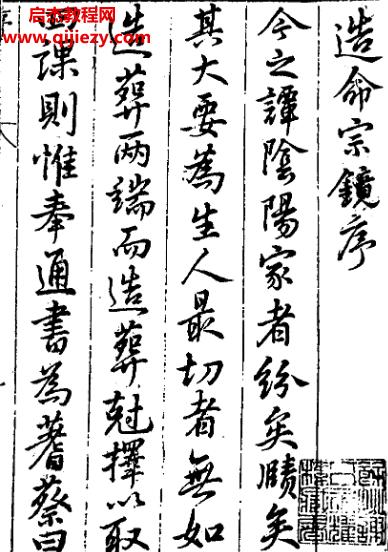 启杰教程网
www.qijiezy.com
造命宗鏡序
今之譚陰陽家者紛矣賾矣
其大要為生人最切者無如
造葬兩端而造葬尅擇以取
課則惟奉通書為蓍蔡曰